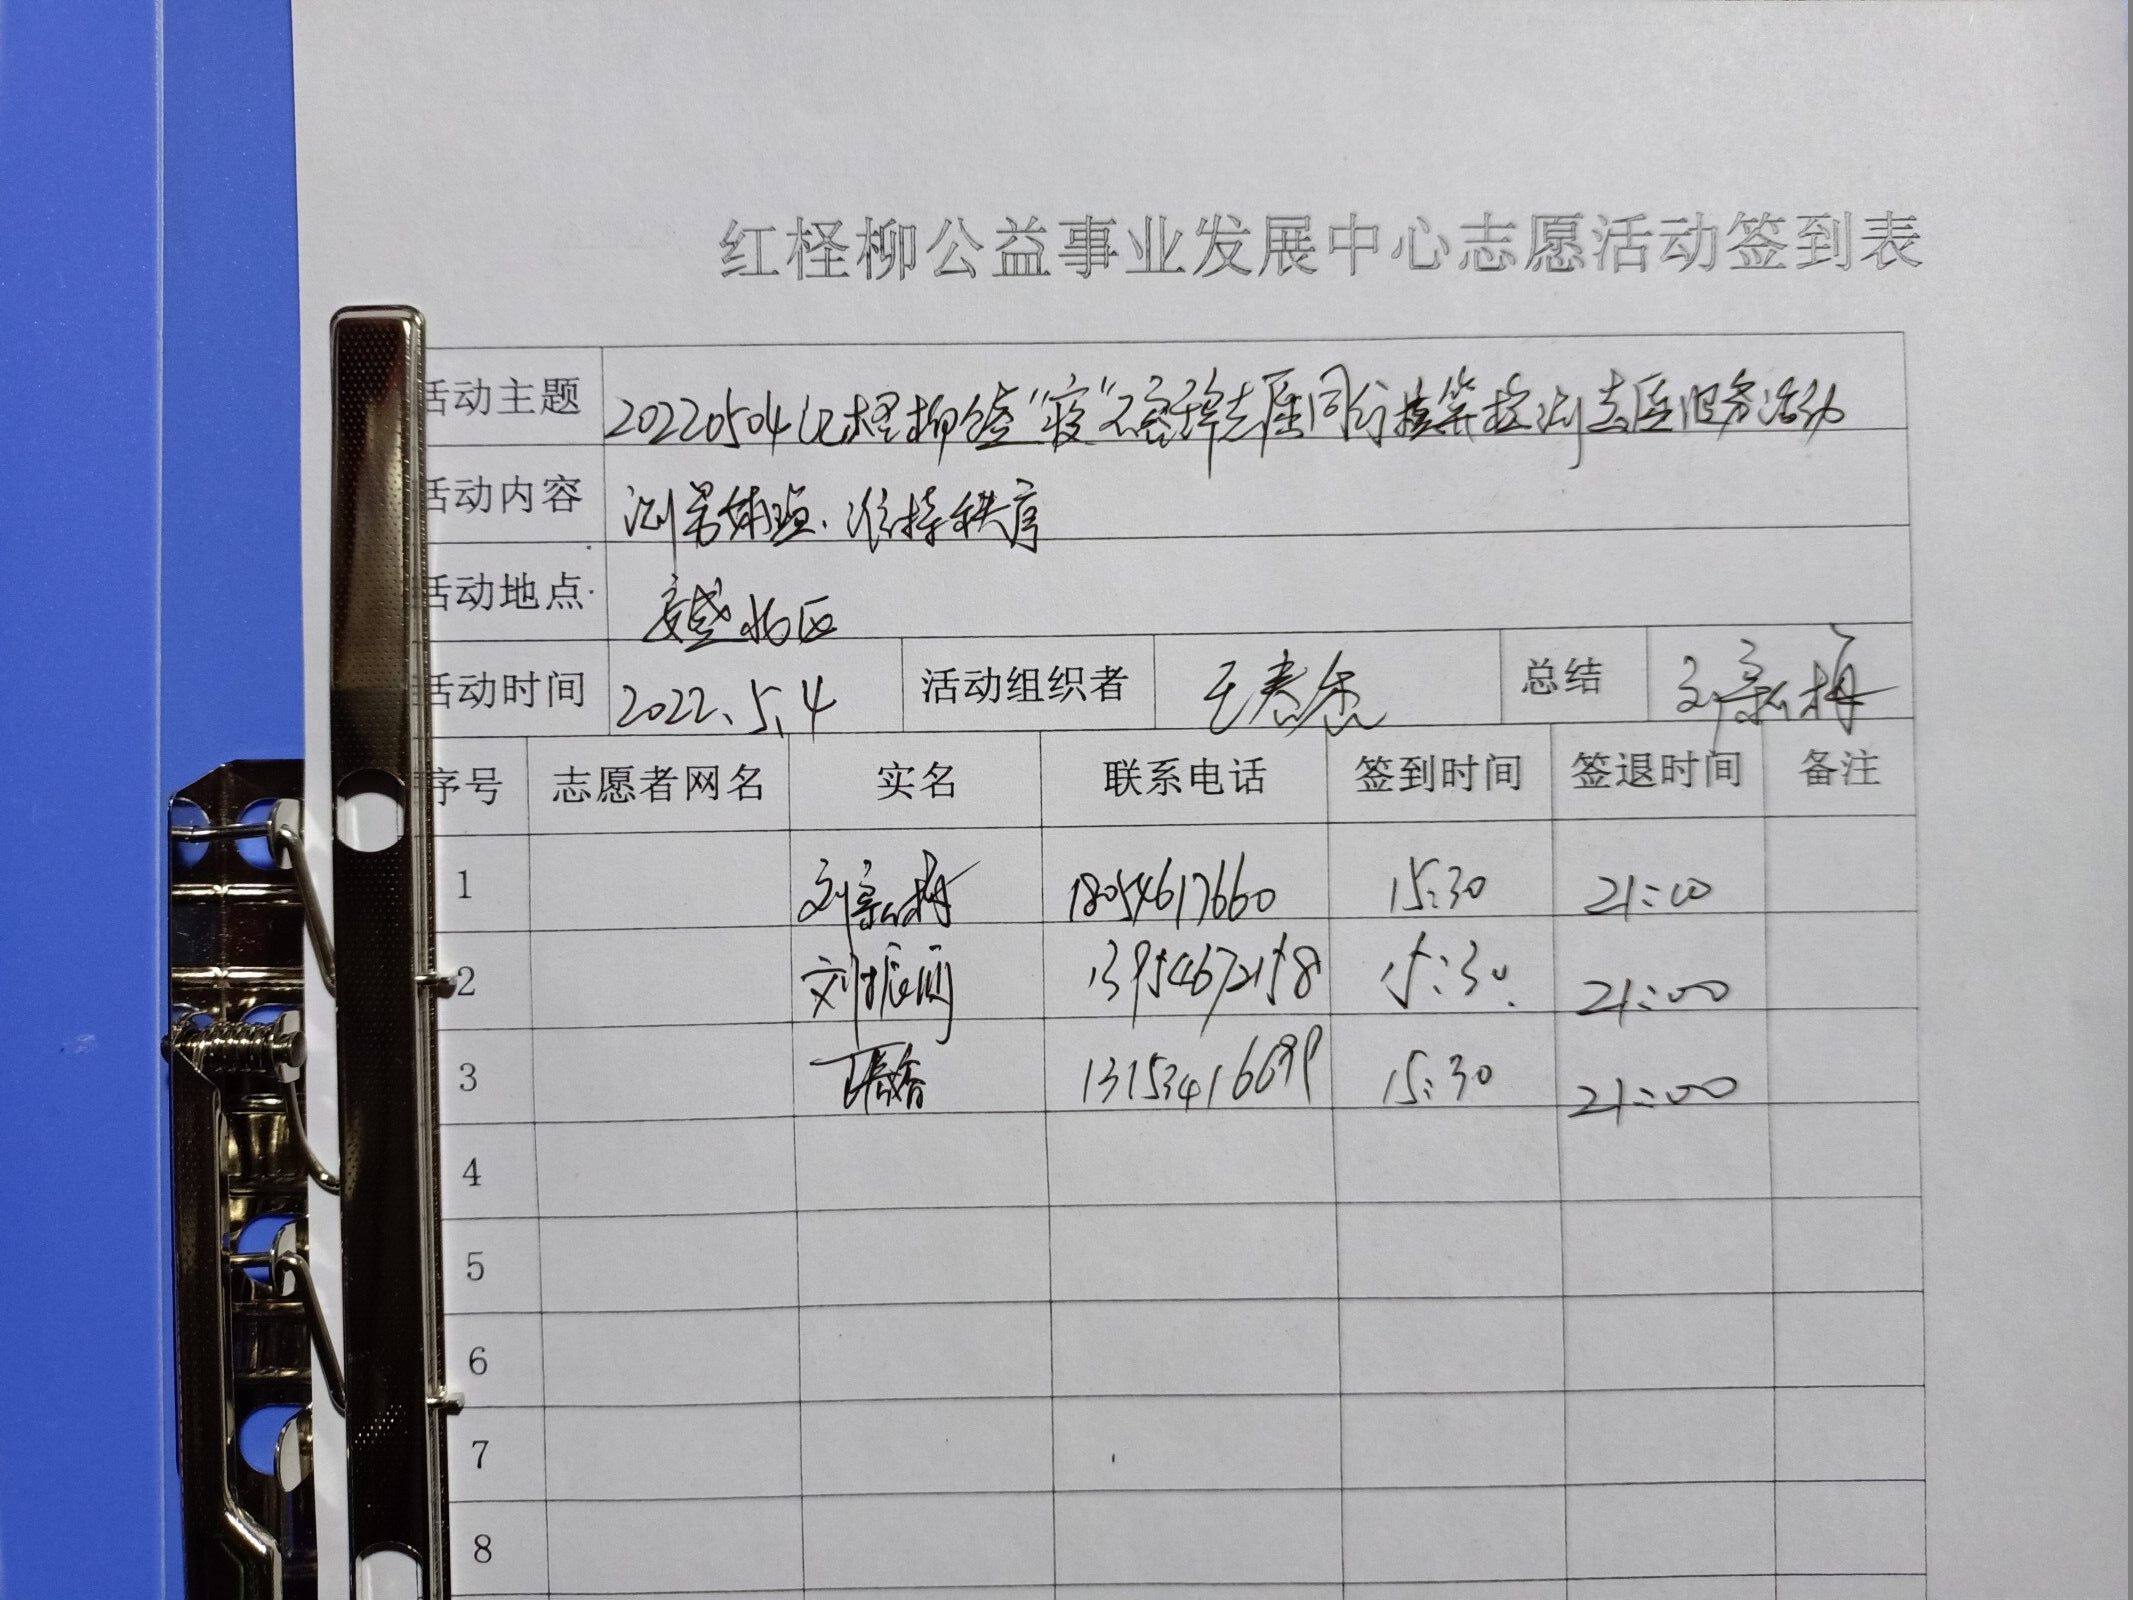 红柽柳公益事业发展中心志愿活动签到表
活动主题 20220504红柽柳 "疫"不容辞志愿同行核算检测志愿服务活动
活动内容 测 维持秩序
活动地点 安盛北区
活动时间 2022、5、4 活动组织者 总结
序号 志愿者网名 实名 联系电话 签到时间 签退时间 备注
1 18054617660 15:30 21:00
2 13954672158 15:30 21:00
3 13153416699 15:30 21:00
4
5
6
7
8